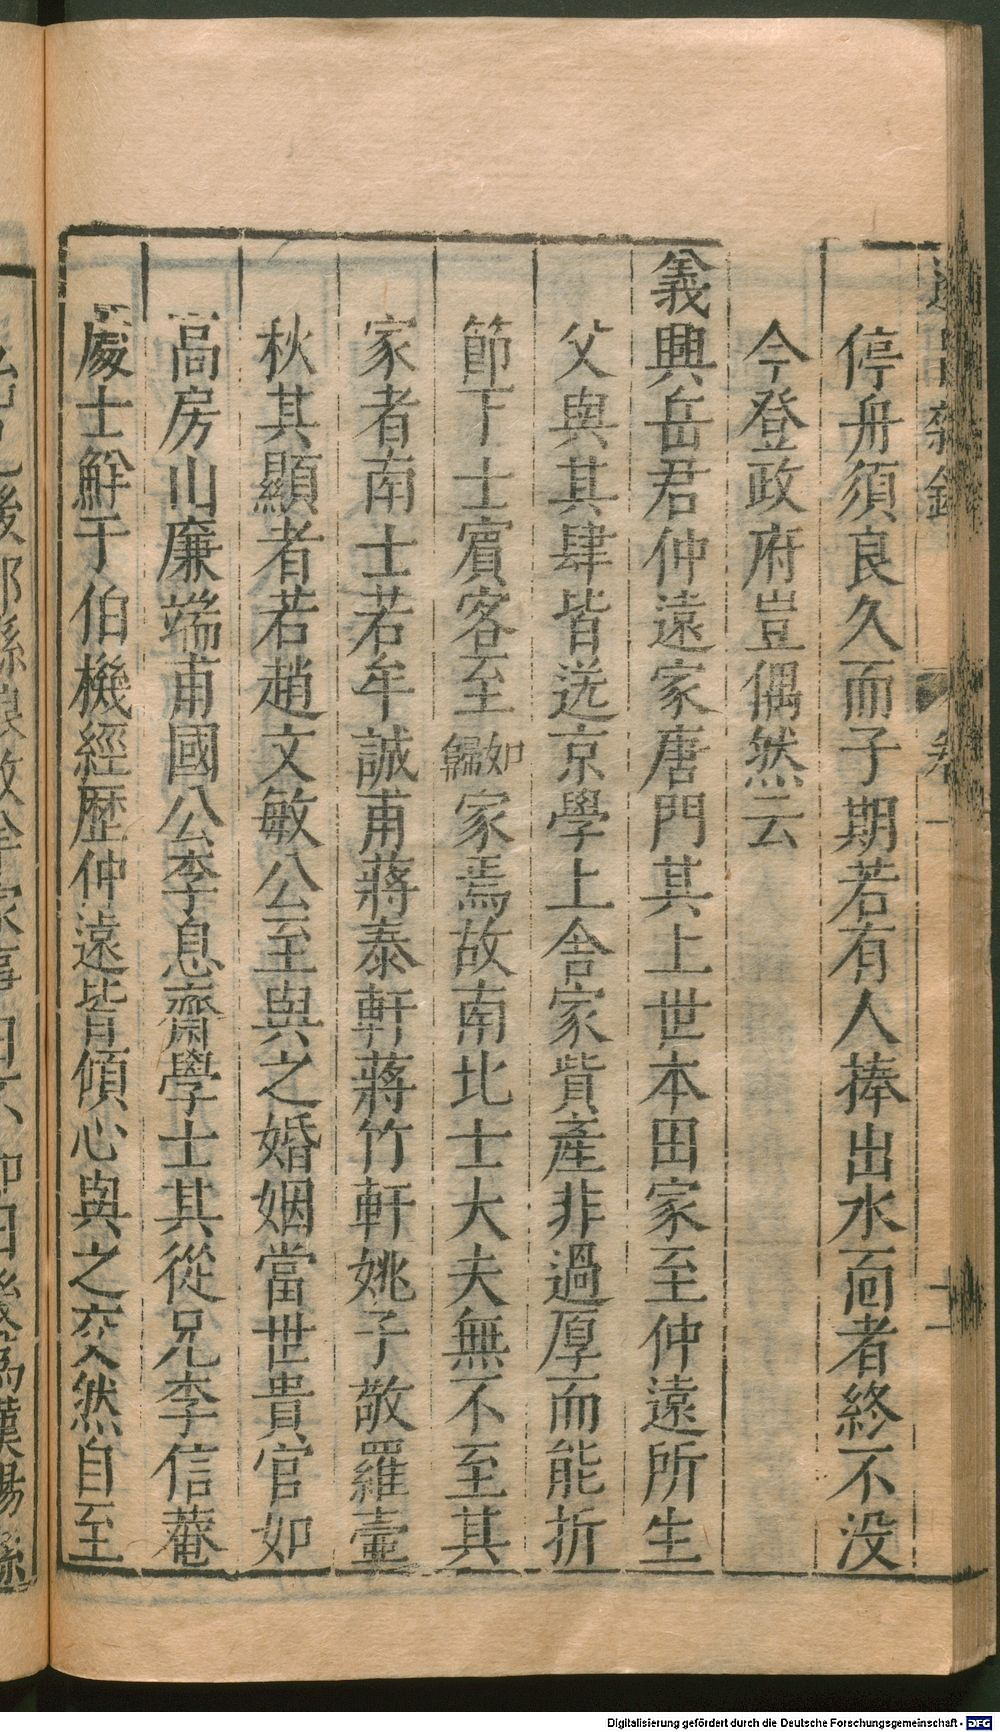 停舟須良久而子期若有人捧出水面者終不没
今登政府豈偶然云
義興岳君仲遠家唐門其上世本田家至仲遠所生
父與其肆皆选京學上舍家貲產非過厚而能折
節下士賓客至如歸家焉故南北士大夫無不至其
家者南士若牟誠甫蔣泰軒蔣竹軒姚子敬羅壺
秋其顯者若趙文敏公至與之婚姻當世貴官如
高房山廉端甫國公李息齋學士其從兄李信菴
處士鮮于伯機經歷仲遠皆傾心與之交然自至
Digitalisierung gefördert durch die Deutsche Forschungsgemeinschaft - DFG